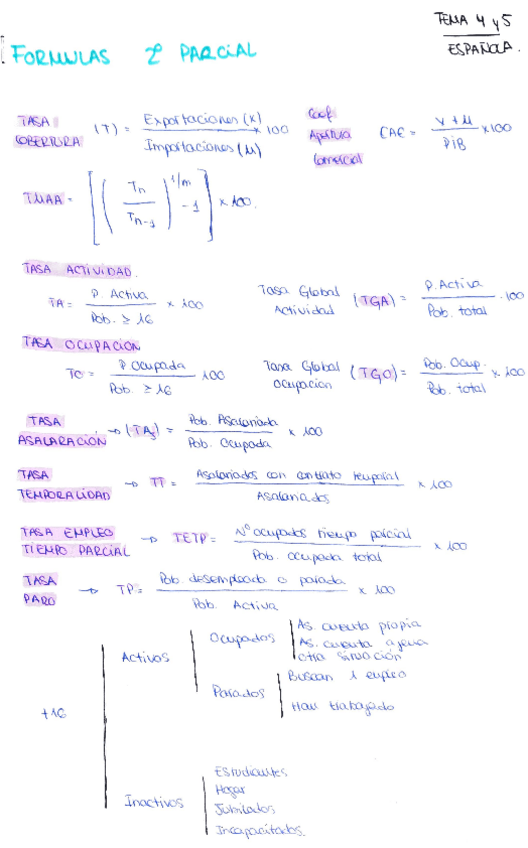 TEMA 4 y 5
ESPAÑOLA.
FORMULAS 2º PARCIAL
TASA COBERTURA (T) = Exportaciones (X) / Importaciones (M) × 100
Coef Apertura Comercial CAE = X + M / PIB × 100
TMAA = [(Tn / Tn-1)^1/m - 1] × 100.
TASA ACTIVIDAD.
TA = P. Activa / Pob. ≥ 16 × 100
Tasa Global Actividad (TGA) = P. Activa / Pob. total · 100
TASA OCUPACION
TO = P Ocupada / Pob. ≥ 16 · 100
Tasa Global Ocupacion (TGO) = Pob. Ocup. / Pob. total × 100
TASA ASALARACIÓN → (TAs) = Pob. Asalariada / Pob. Ocupada × 100
TASA TEMPORALIDAD → TT = Asalariados con contrato temporal / Asalariados × 100
TASA EMPLEO TIEMPO PARCIAL → TETP = Nº ocupados tiempo parcial / Pob. ocupada total × 100
TASA PARO → TP = Pob. desempleada o parada / Pob. Activa × 100
+16
Activos
Ocupados
As. cuenta propia
As. cuenta ajena
otra situación
Parados
Buscan 1 empleo
Han trabajado
Inactivos
Estudiantes
Hogar
Jubilados
Incapacitados.